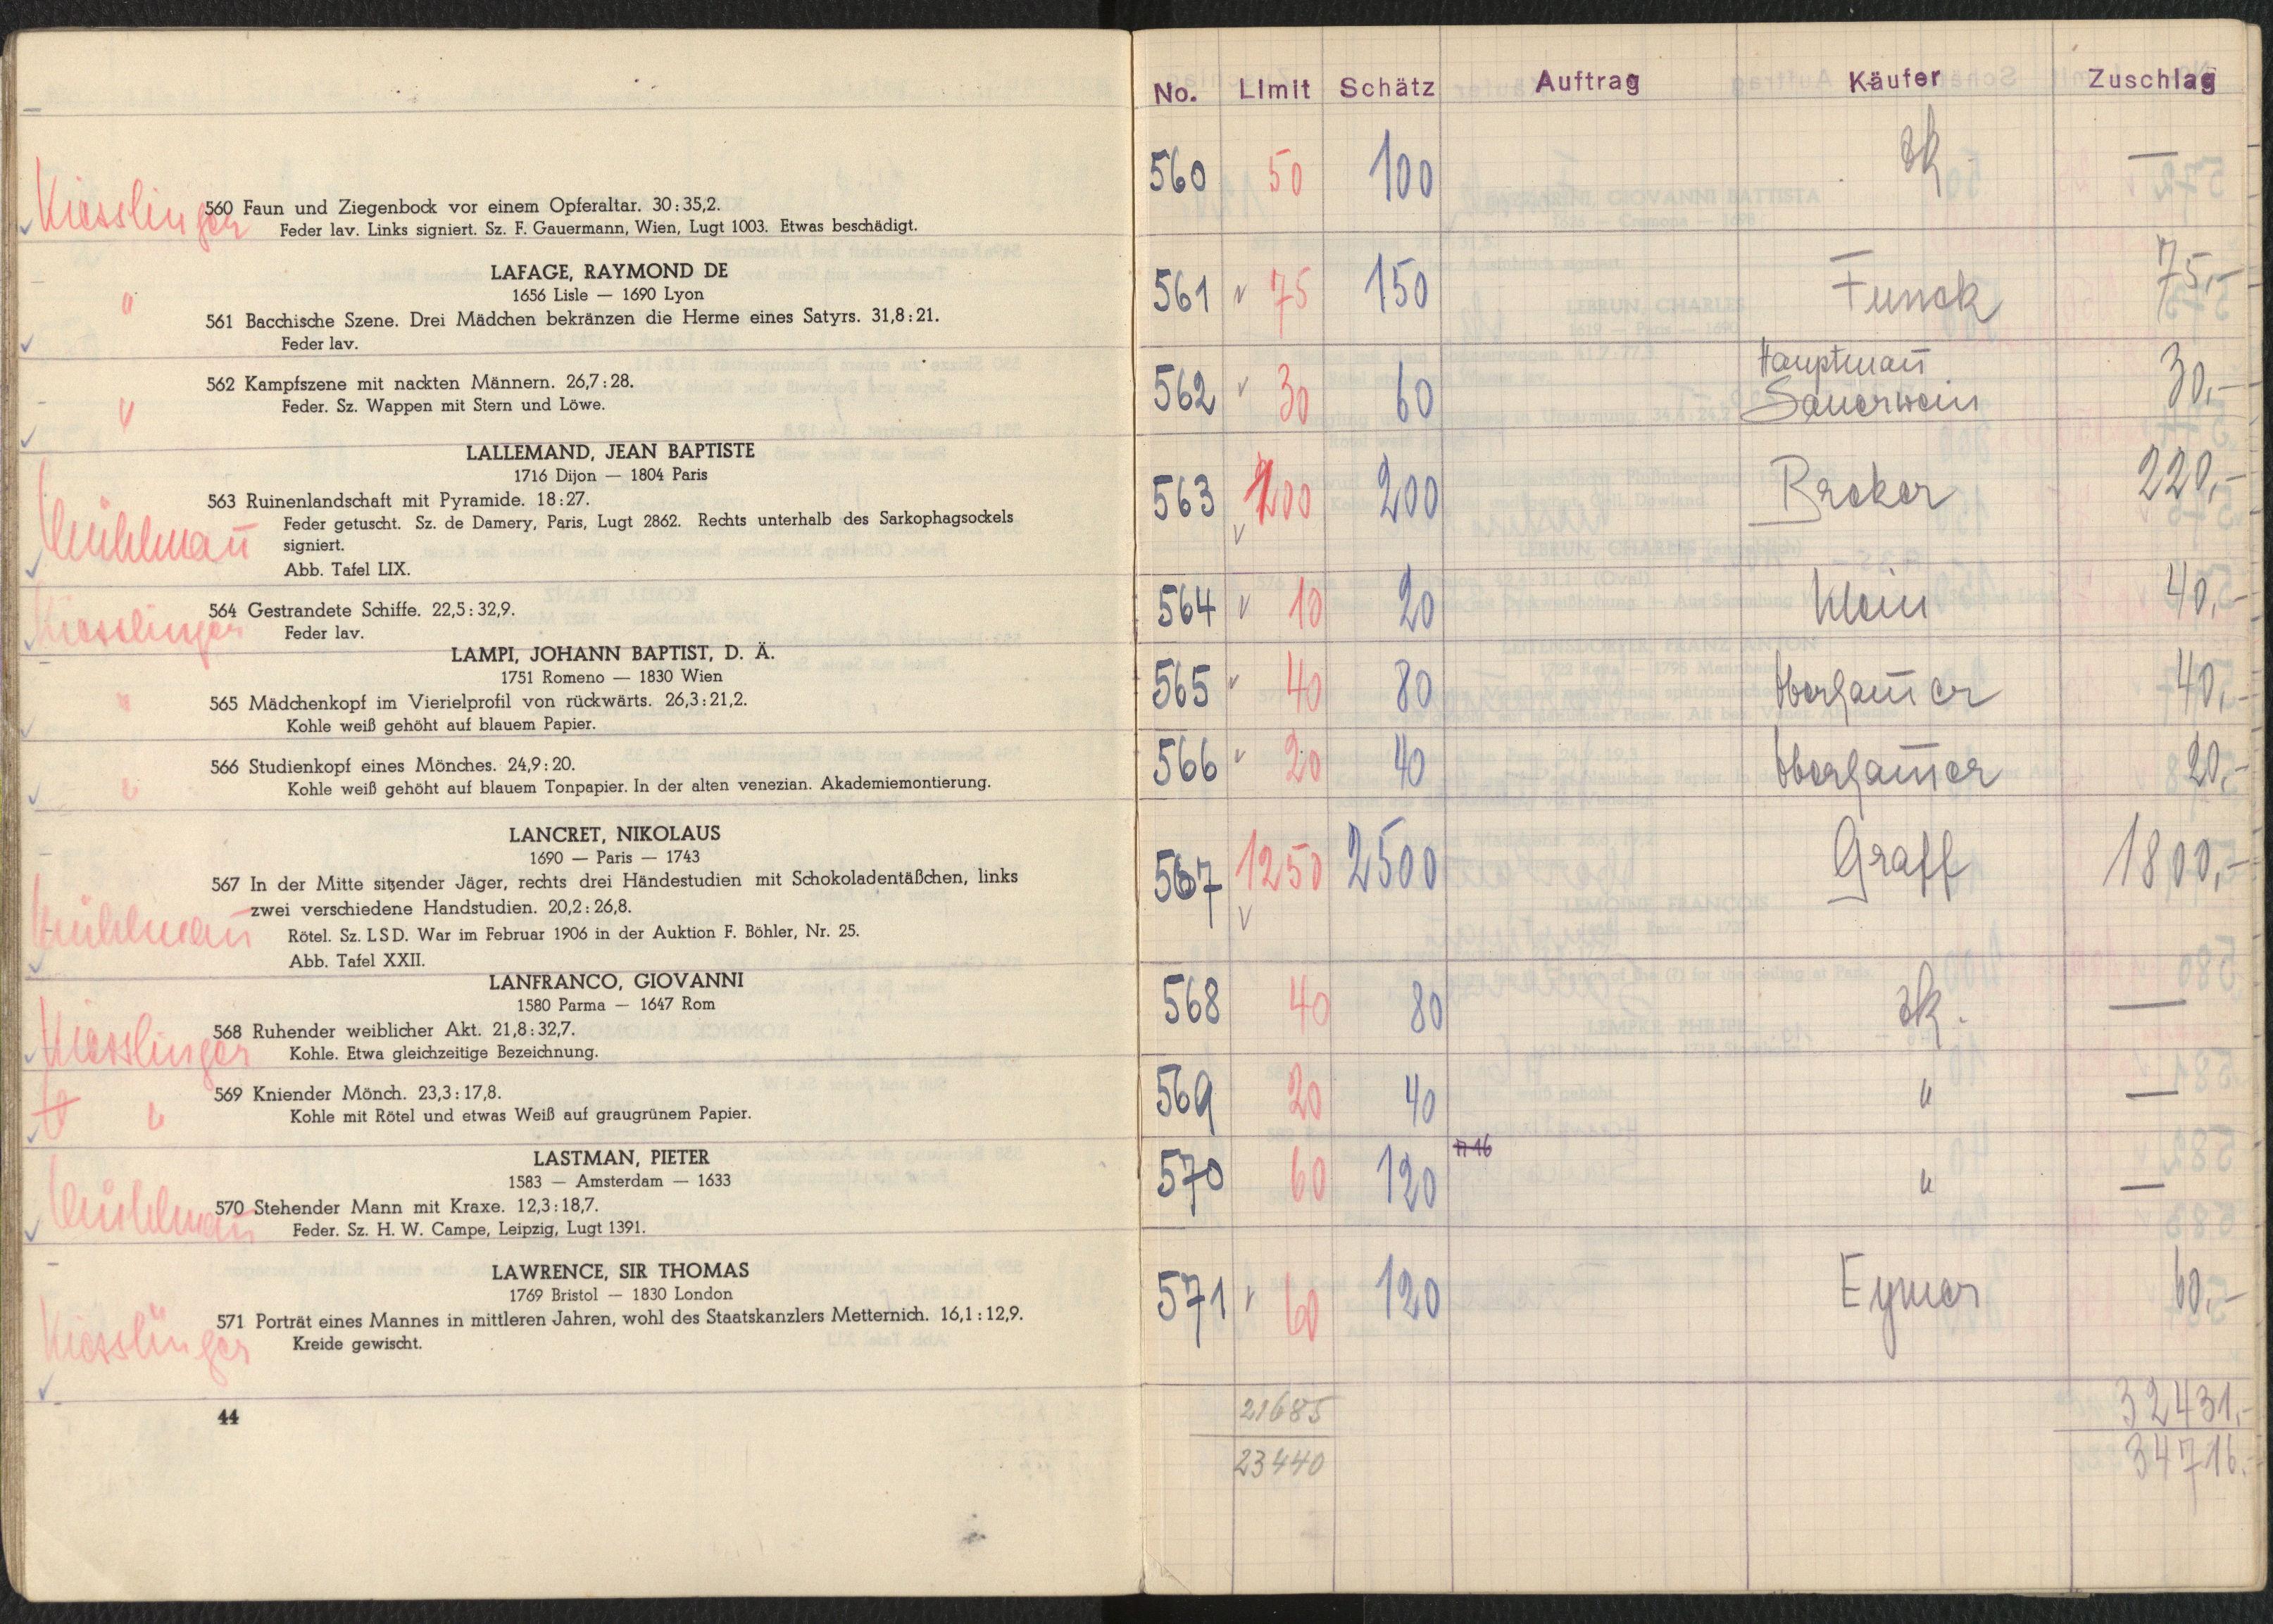 Kiesslinger
560 Faun und Ziegenbock vor einem Opferaltar. 30:35,2.
Feder lav. Links signiert. Sz. F. Gauermann, Wien, Lugt 1003. Etwas beschädigt.
LAFAGE, RAYMOND DE
1656 Lisle — 1690 Lyon
"
561 Bacchische Szene. Drei Mädchen bekränzen die Herme eines Satyrs. 31,8:21.
Feder lav.
562 Kampfszene mit nackten Männern. 26,7:28.
"
Feder. Sz. Wappen mit Stern und Löwe.
LALLEMAND, JEAN BAPTISTE
1716 Dijon — 1804 Paris
563 Ruinenlandschaft mit Pyramide. 18:27.
Feder getuscht. Sz. de Damery, Paris, Lugt 2862. Rechts unterhalb des Sarkophagsockels
Mühlmann
signiert.
Abb. Tafel LIX.
564 Gestrandete Schiffe. 22,5:32,9.
Kiesslinger
Feder lav.
LAMPI, JOHANN BAPTIST, D. Ä.
1751 Romeno — 1830 Wien
"
565 Mädchenkopf im Vierielprofil von rückwärts. 26,3:21,2.
Kohle weiß gehöht auf blauem Papier.
566 Studienkopf eines Mönches. 24,9:20.
"
Kohle weiß gehöht auf blauem Tonpapier. In der alten venezian. Akademiemontierung.
LANCRET, NIKOLAUS
1690 — Paris — 1743
567 In der Mitte sitzender Jäger, rechts drei Händestudien mit Schokoladentäßchen, links
zwei verschiedene Handstudien. 20,2:26,8.
Mühlmann
Rötel. Sz. LSD. War im Februar 1906 in der Auktion F. Böhler, Nr. 25.
Abb. Tafel XXII.
LANFRANCO, GIOVANNI
1580 Parma — 1647 Rom
568 Ruhender weiblicher Akt. 21,8:32,7.
Kiesslinger
Kohle. Etwa gleichzeitige Bezeichnung.
569 Kniender Mönch. 23,3:17,8.
"
Kohle mit Rötel und etwas Weiß auf graugrünem Papier.
LASTMAN, PIETER
1583 — Amsterdam — 1633
570 Stehender Mann mit Kraxe. 12,3:18,7.
Mühlmann
Feder. Sz. H. W. Campe, Leipzig, Lugt 1391.
LAWRENCE, SIR THOMAS
1769 Bristol — 1830 London
571 Porträt eines Mannes in mittleren Jahren, wohl des Staatskanzlers Metternich. 16,1:12,9.
Kiesslinger
Kreide gewischt.
44
No. Limit Schätz Auftrag Käufer Zuschlag
560 50 100 —
561 75 150 Funck 75,-
562 30 60 Hauptmann Sauerwein 30,-
563 100 200 Breker 220,-
564 10 20 Klein 40,-
565 40 80 Oberhammer 40,-
566 20 40 Oberhammer 20,-
567 1250 2500 Graff 1800,-
568 40 80 —
569 20 40 " —
570 60 120 " —
571 60 120 Eymer 60,-
21685 32431,-
23440 34716.-